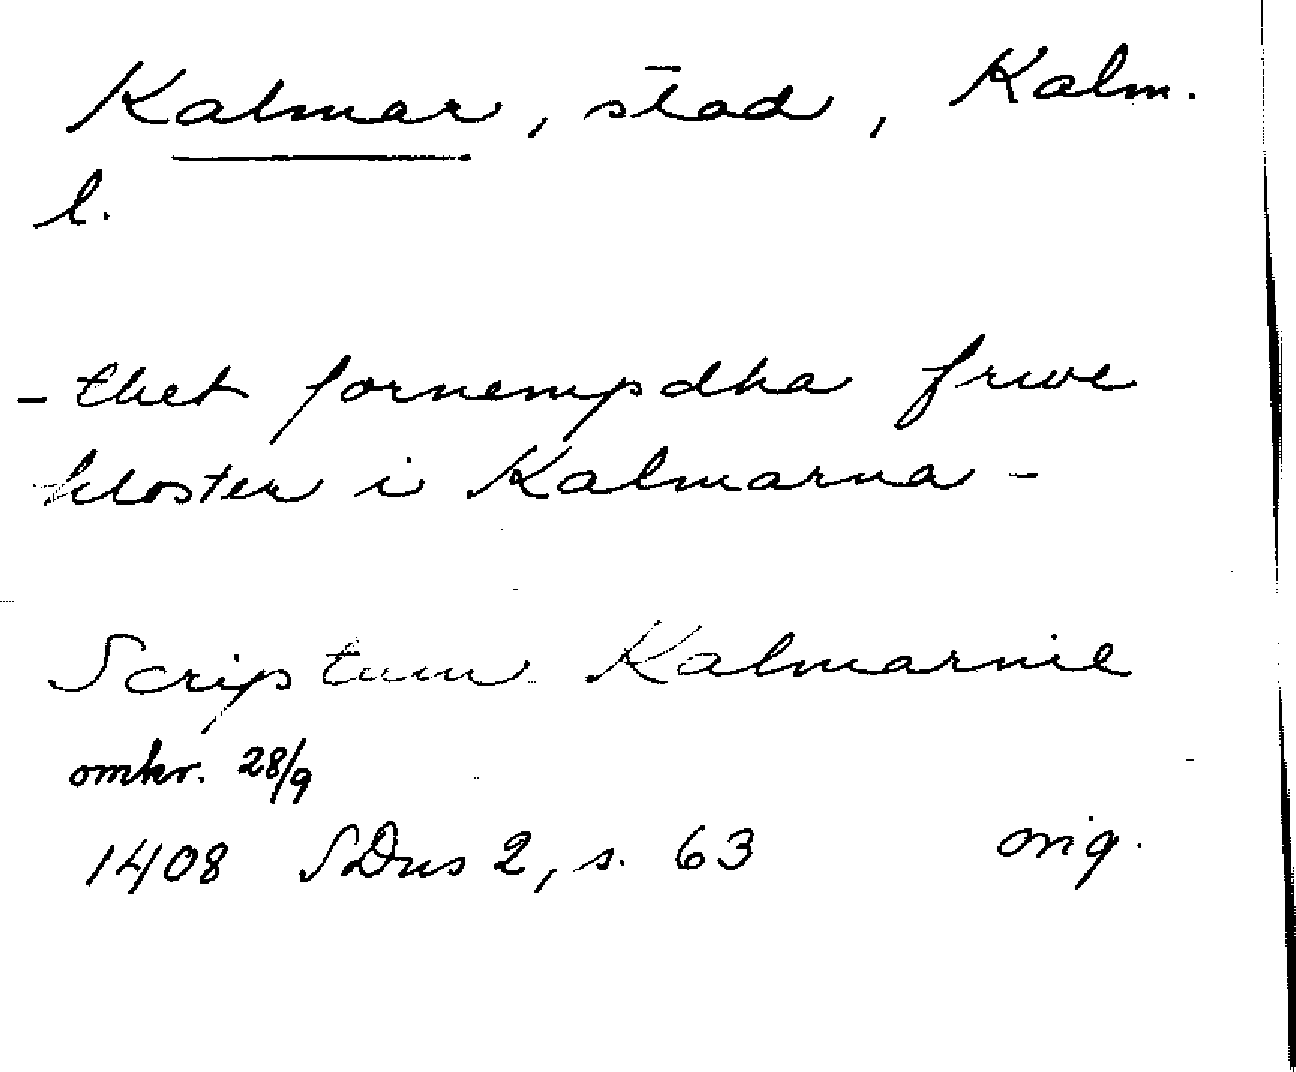 Kalmar, stad, Kalm.
l.
- thet fornempdha frwe
kloster i Kalmarna -
Scriptum Kalmarnie
omkr. 28/9
1408 SDns 2, s. 63 orig.